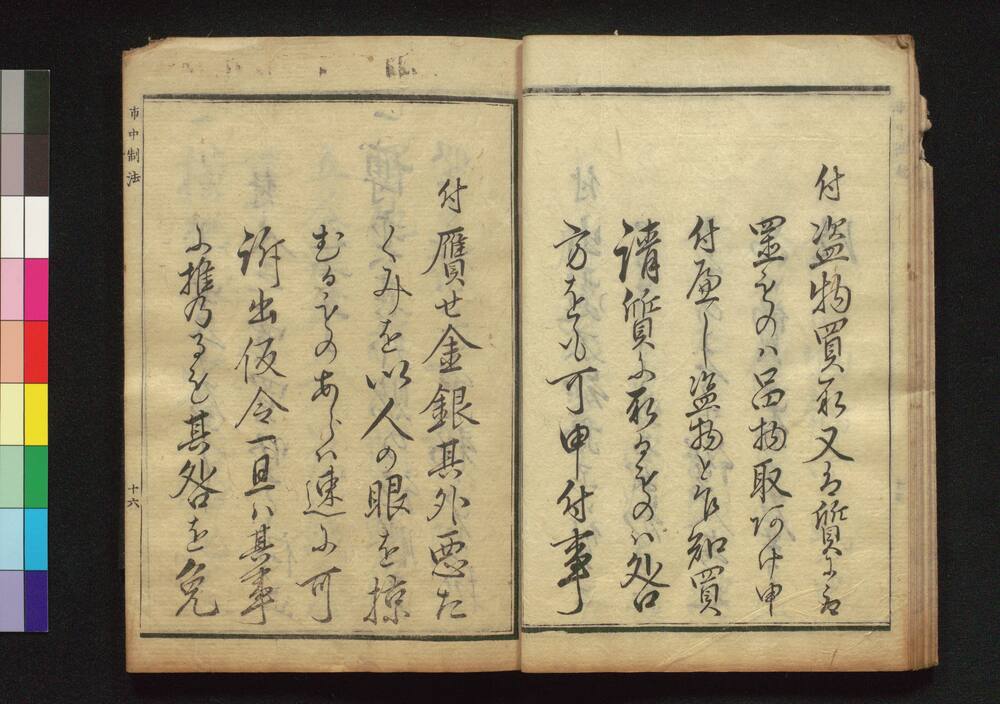 付 盗物買取又は質に取
置ものハ品物取あけ申
付へし盗物と乍知買
請質に取るものハ咎
方をも可申付事
付 贋せ金銀其外悪た
くみを以人の眼を掠
むるものあらハ速に可
訴出仮令一旦ハ其事
に携るとも其咎を免
市中制法
十六